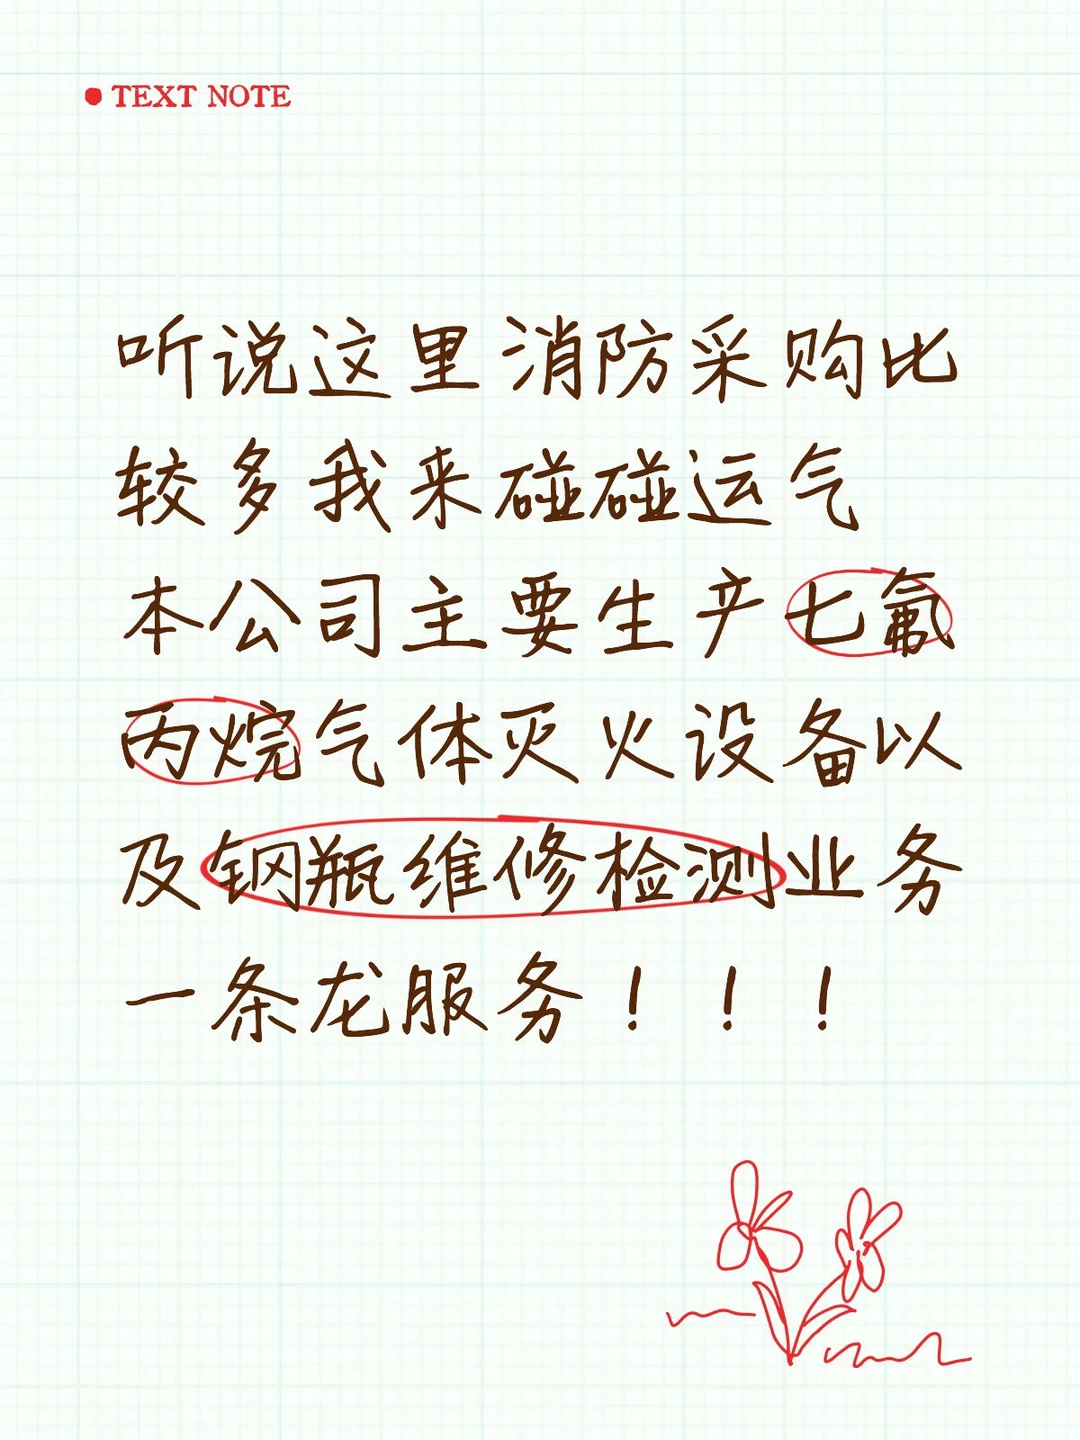 TEXT NOTE
听说这里消防采购比
较多我来碰碰运气
本公司主要生产七氟
丙烷气体灭火设备以
及钢瓶维修检测业务
一条龙服务！！！